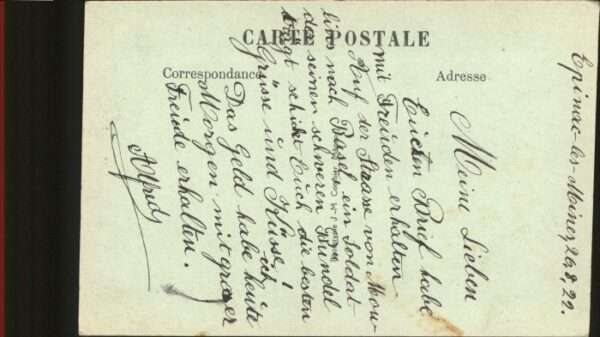 CARTE POSTALE
Correspondance
Adresse
Epinac-les-Mines, 26.8.22.
Meine Lieben
Eueren Brief habe
mit Freuden erhalten
Auf der Strasse von Mou-
lins nach Basel ein Soldat
der seinen schweren Bündel
trägt schickt Euch die besten
Grüsse und Küsse!
ich
Das Geld habe heute
Morgen mit groser
Freude erhalten.
Alfred